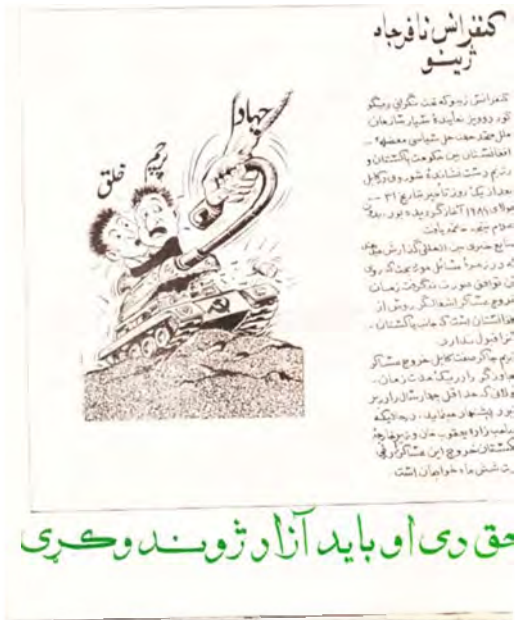 کنفرانس نافرجام
ژینو
جهاد
پرچم
خلق
کنفرانس ژینو که تحت نگرانی دیگو
کوردوویز نماینده سیار سازمان
ملل متحد جهت حل سیاسی معضله
افغانستان بین حکومت پاکستان و
رژیم دست نشانده شوروی در کابل
بعد از یک روز تأخیر بتاریخ ۳۱
آغاز گردیده بود، بدون
منابع خبری بین المللی گزارش میدهند
که در زمره مسائل مورد بحث که روی
آن توافق صورت نگرفت زمان
خروج عساکر اشغالگر روس از
افغانستان است که جانب پاکستان
آنرا قبول ندارد.
خروج عساکر
را در یک مدت زمان
که حد اقل چهار سال را در بر
گیرد پیشنهاد مینماید، درحالیکه
صاحب زاده یعقوب خان وزیر خارجه
پاکستان خروج این عساکر را
شش ماه خواهان است
حق دی او باید آزاد ژوند وکړی